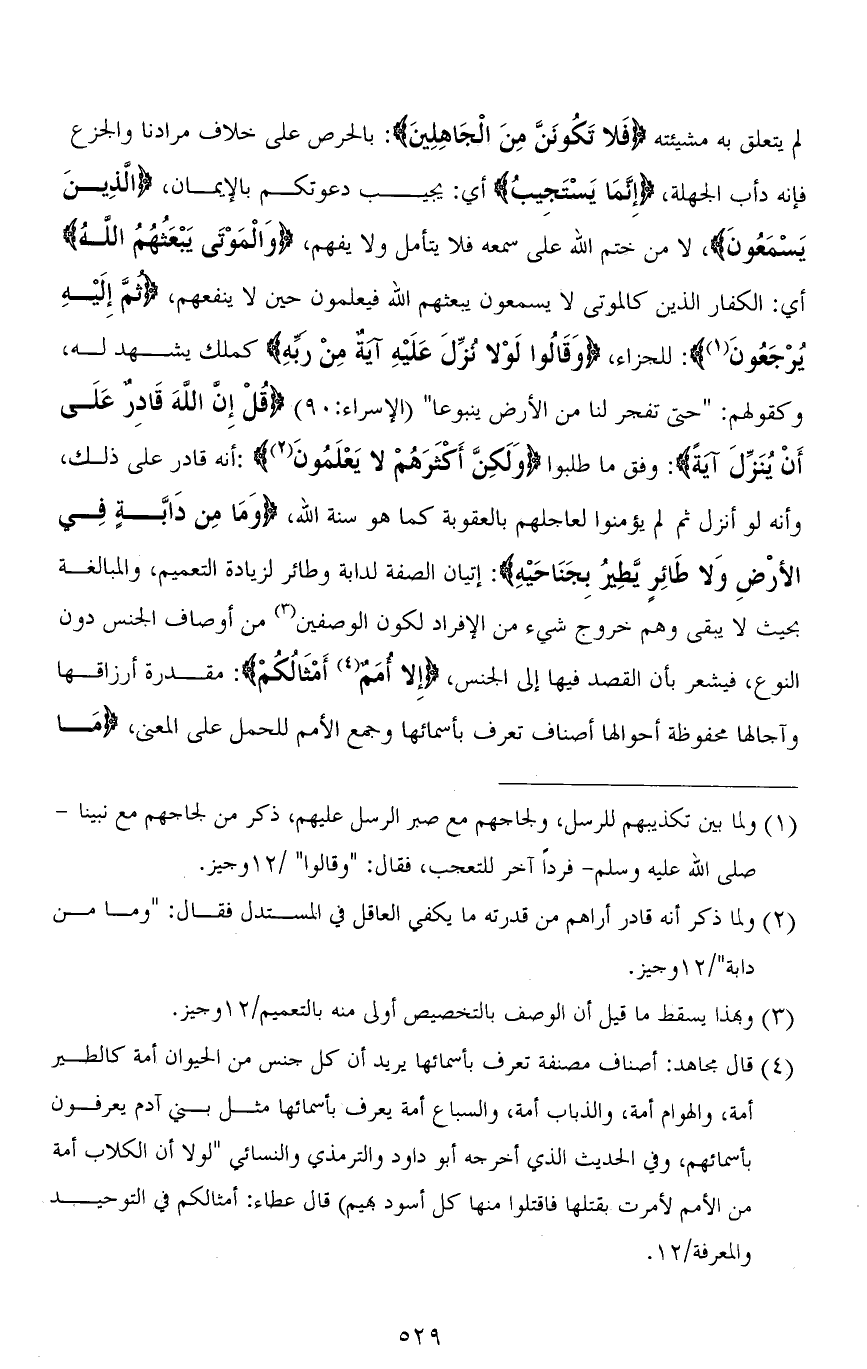 لم يتعلق به مشيئته ﴿فَلا تَكُونَنَّ مِنَ الْجَاهِلِينَ﴾: بالحرص على خلاف مرادنا والجزع
فإنه دأب الجهلة، ﴿إِنَّمَا يَسْتَجِيبُ﴾ أي: يجيب دعوتكم بالإيمان، ﴿الَّذِينَ
يَسْمَعُونَ﴾، لا من ختم الله على سمعه فلا يتأمل ولا يفهم، ﴿وَالْمَوْتَى يَبْعَثُهُمُ اللَّهُ﴾
أي: الكفار الذين كالموتى لا يسمعون يبعثهم الله فيعلمون حين لا ينفعهم، ﴿ثُمَّ إِلَيْهِ
يُرْجَعُونَ(١)﴾: للجزاء، ﴿وَقَالُوا لَوْلا نُزِّلَ عَلَيْهِ آيَةٌ مِنْ رَبِّهِ﴾ كملك يشهد له،
وكقولهم: "حتى تفجر لنا من الأرض ينبوعا" (الإسراء:٩٠) ﴿قُلْ إِنَّ اللَّهَ قَادِرٌ عَلَى
أَنْ يُنَزِّلَ آيَةً﴾: وفق ما طلبوا ﴿وَلَكِنَّ أَكْثَرَهُمْ لا يَعْلَمُونَ(٢)﴾ :أنه قادر على ذلك،
وأنه لو أنزل ثم لم يؤمنوا لعاجلهم بالعقوبة كما هو سنة الله، ﴿وَمَا مِن دَابَّةٍ فِي
الأَرْضِ وَلا طَائِرٍ يَّطِيرُ بِجَنَاحَيْهِ﴾: إتيان الصفة لدابة وطائر لزيادة التعميم، والمبالغة
بحيث لا يبقى وهم خروج شيء من الإفراد لكون الوصفين(٣) من أوصاف الجنس دون
النوع، فيشعر بأن القصد فيها إلى الجنس، ﴿إِلا أُمَمٌ(٤) أَمْثَالُكُمْ﴾: مقدرة أرزاقها
وآجالها محفوظة أحوالها أصناف تعرف بأسمائها وجمع الأمم للحمل على المعنى، ﴿مَا
(١) ولما بين تكذيبهم للرسل، ولجاجهم مع صبر الرسل عليهم، ذكر من لجاجهم مع نبينا -
صلى الله عليه وسلم- فرداً آخر للتعجب، فقال: "وقالوا" /١٢وجيز.
(٢) ولما ذكر أنه قادر أراهم من قدرته ما يكفي العاقل في المستدل فقال: "وما من
دابة"/١٢وجيز.
(٣) وبهذا يسقط ما قيل أن الوصف بالتخصيص أولى منه بالتعميم/١٢وجيز.
(٤) قال مجاهد: أصناف مصنفة تعرف بأسمائها يريد أن كل جنس من الحيوان أمة كالطير
أمة، والهوام أمة، والذباب أمة، والسباع أمة يعرف بأسمائها مثل بني آدم يعرفون
بأسمائهم، وفي الحديث الذي أخرجه أبو داود والترمذي والنسائي "لولا أن الكلاب أمة
من الأمم لأمرت بقتلها فاقتلوا منها كل أسود بهيم) قال عطاء: أمثالكم في التوحيد
والمعرفة/١٢.
٥٢٩